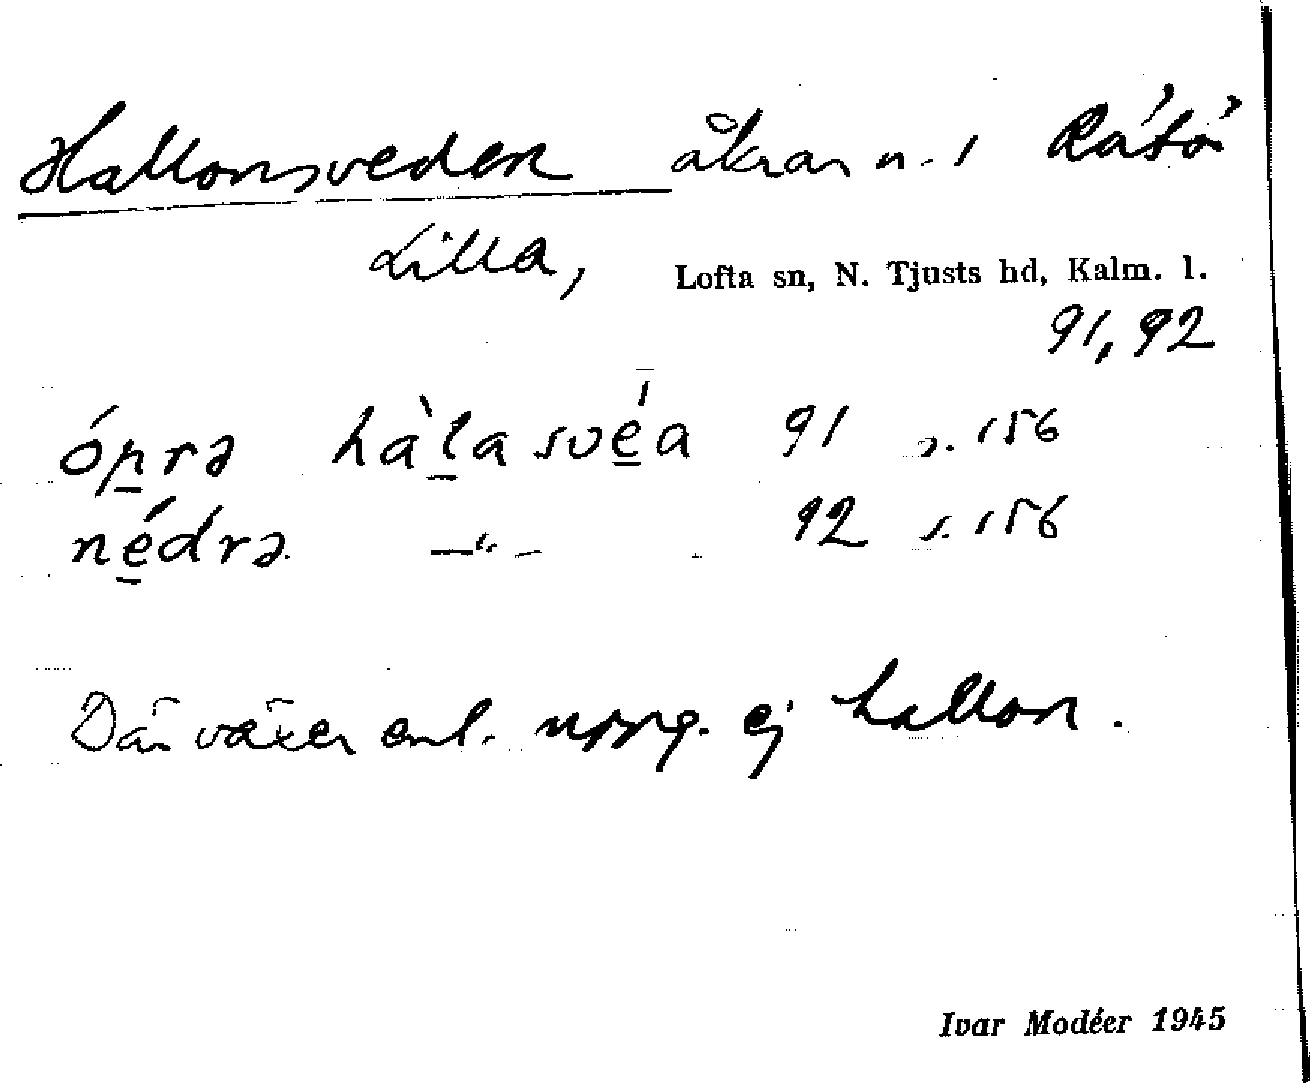 Hallonsveden åkrar n. 1 Råtö
Lilla, Lofta sn, N. Tjusts hd, Kalm. l.
91, 92
óprə hàlasvéa 91 s. 156
nédrə —"— 92 s. 156
Där växer enl. uppg. ej hallon.
Ivar Modéer 1945